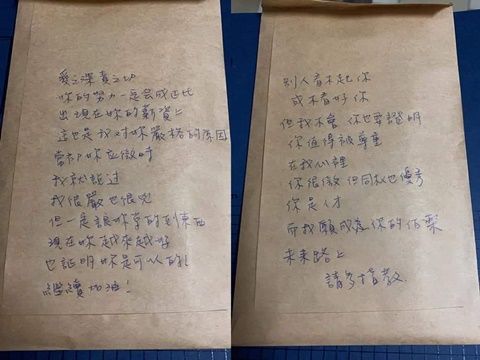 愛之深責之切
妳的努力一定會成正比
出現在妳的薪資上
這也是我對妳嚴格的原因
當初妳應徵時
我就說過
我很嚴也很兇
但一定讓妳學的到東西
現在妳越來越好
也証明妳是可以的!
繼續加油!
別人看不起你
或不看好你
但我不會 你也要證明
你值得被尊重
在我心裡
你很傲 但同私也優秀
你是人才
而我願成為你的伯樂
未來路上
請多指教